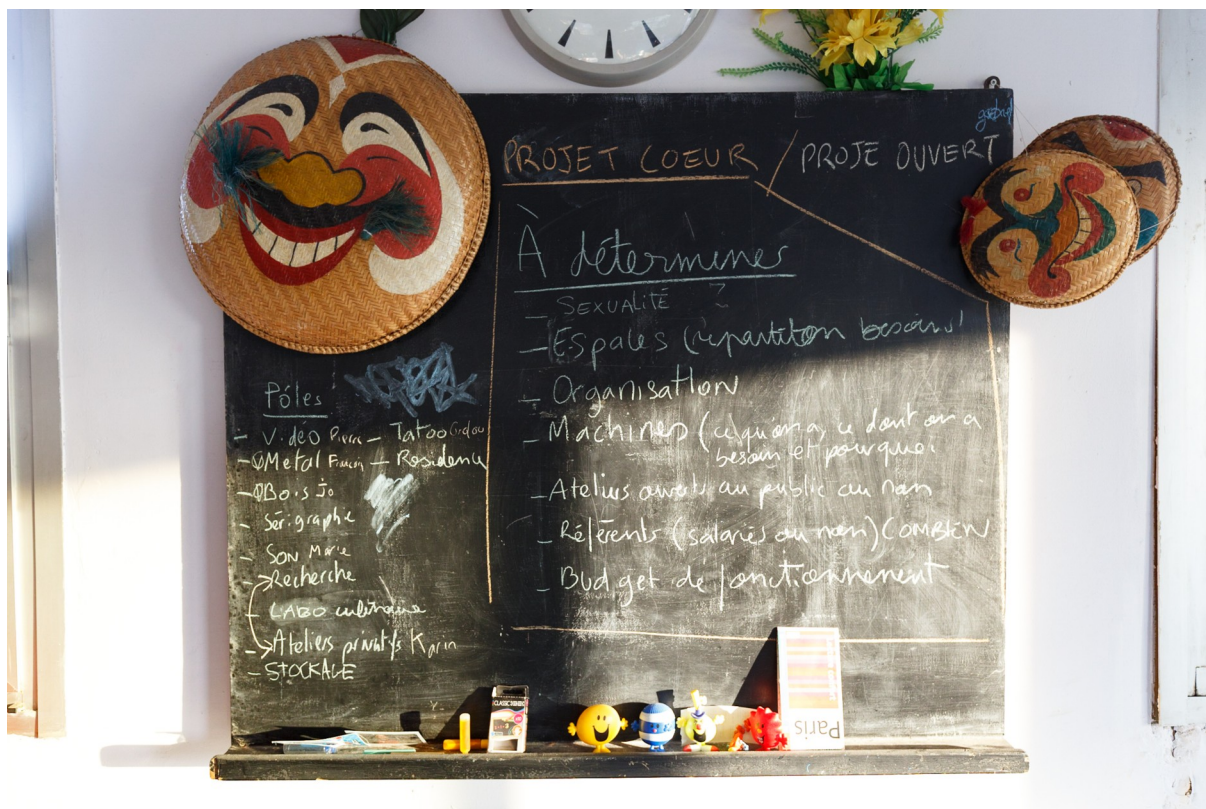 PROJET COEUR / PROJE OUVERT
À déterminer
- SEXUALITÉ ?
- Espaces (répartition besoins)
- Organisation
- Machines (ce qu'on a, ce dont on a
besoin et pourquoi
- Ateliers ouverts au public ou non
- Référents (salariés ou non) COMBIEN
- Budget de fonctionnement
Pôles
- Vidéo Pierre - Tatoo
- Metal François - Residence
- Bois Jo
- Sérigraphe
- SON Marie
- Recherche
- LABO culinaire
- Ateliers privatifs Karin
- STOCKAGE
Paris